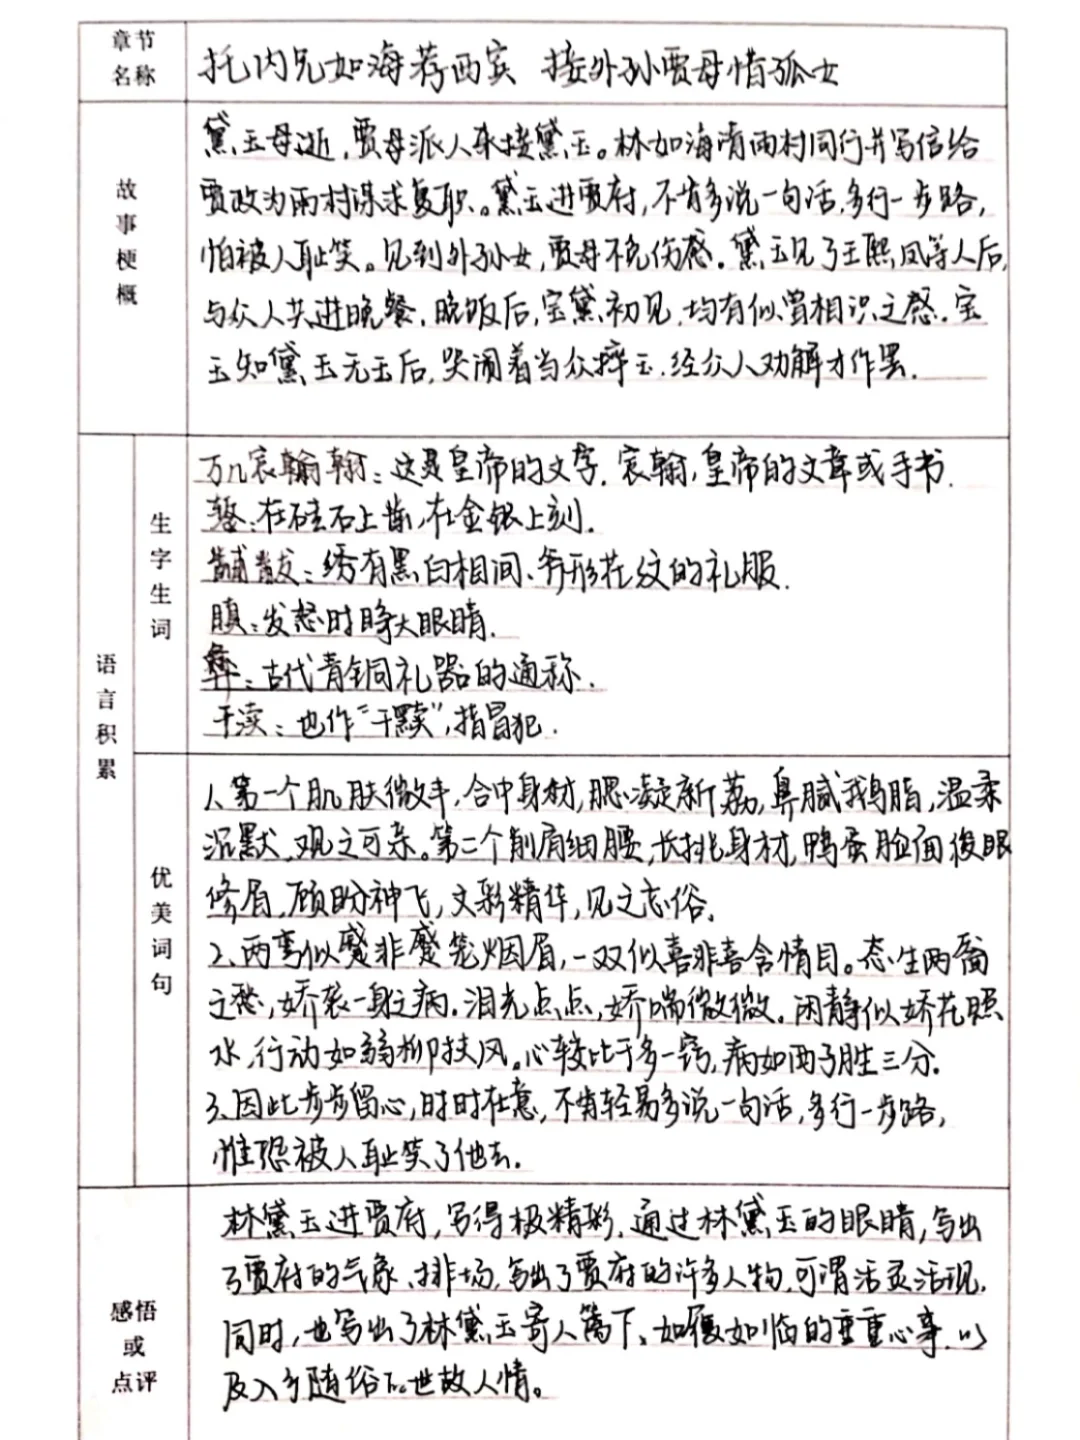 章节名称
托内兄如海荐西宾 接外孙贾母惜孤女
故事梗概
黛玉母逝，贾母派人来接黛玉。林如海请雨村同行并写信给
贾政为雨村谋求复职。黛玉进贾府，不肯多说一句话，多行一步路，
怕被人耻笑。见到外孙女，贾母不免伤感。黛玉见了王熙凤等人后，
与众人共进晚餐，晚饭后，宝黛初见，均有似曾相识之感。宝
玉知黛玉无玉后，哭闹着当众摔玉，经众人劝解才作罢。
语言积累
生字生词
万几宸翰翰：这是皇帝的文字。宸翰，皇帝的文章或手书。
錾：在硅石上凿，在金银上刻。
黼黻：绣有黑白相间、斧形花纹的礼服。
瞋：发怒时睁大眼睛。
彝：古代青铜礼器的通称。
干渎：也作“干黩”，指冒犯。
优美词句
1、第一个肌肤微丰，合中身材，腮凝新荔，鼻腻鹅脂，温柔
沉默，观之可亲。第二个削肩细腰，长挑身材，鸭蛋脸面俊眼
修眉，顾盼神飞，文彩精华，见之忘俗。
2、两弯似蹙非蹙笼烟眉，一双似喜非喜含情目。态生两靥
之愁，娇袭一身之病。泪光点点，娇喘微微。闲静似娇花照
水，行动如弱柳扶风。心较比干多一窍，病如西子胜三分。
3、因此步步留心，时时在意，不肯轻易多说一句话，多行一步路，
惟恐被人耻笑了他去。
感悟或点评
林黛玉进贾府，写得极精彩，通过林黛玉的眼睛，写出
了贾府的气象、排场，写出了贾府的许多人物，可谓活灵活现，
同时，也写出了林黛玉寄人篱下、如履如临的重重心事，以
及入乡随俗的世故人情。